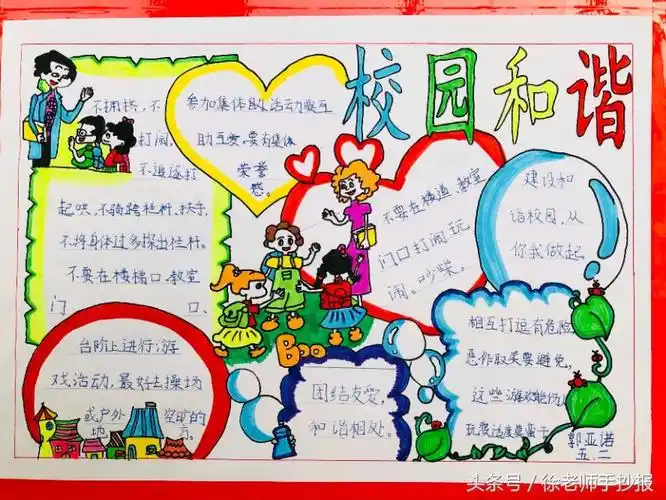 校园和谐
不拥挤,不
打闹,
不追逐打
起哄,不骑跨栏杆、扶手,
不将身体过多探出栏杆。
不要在楼梯口、教室
门口、
参加集体活动要互
助互爱,要有集体
荣誉
感。
不要在楼道、教室
门口打闹玩
闹、吵架。
建设和
谐校园,从
你我做起
台阶上进行游
戏活动,最好去操场
或户外空旷的
地方。
Boo
团结友爱,
和谐相处。
相互打逗有危险,
恶作取笑要避免,
这些游戏难伤
玩耍适度莫蛮干
郭亚诺
五.二
头条号/徐老师手抄报